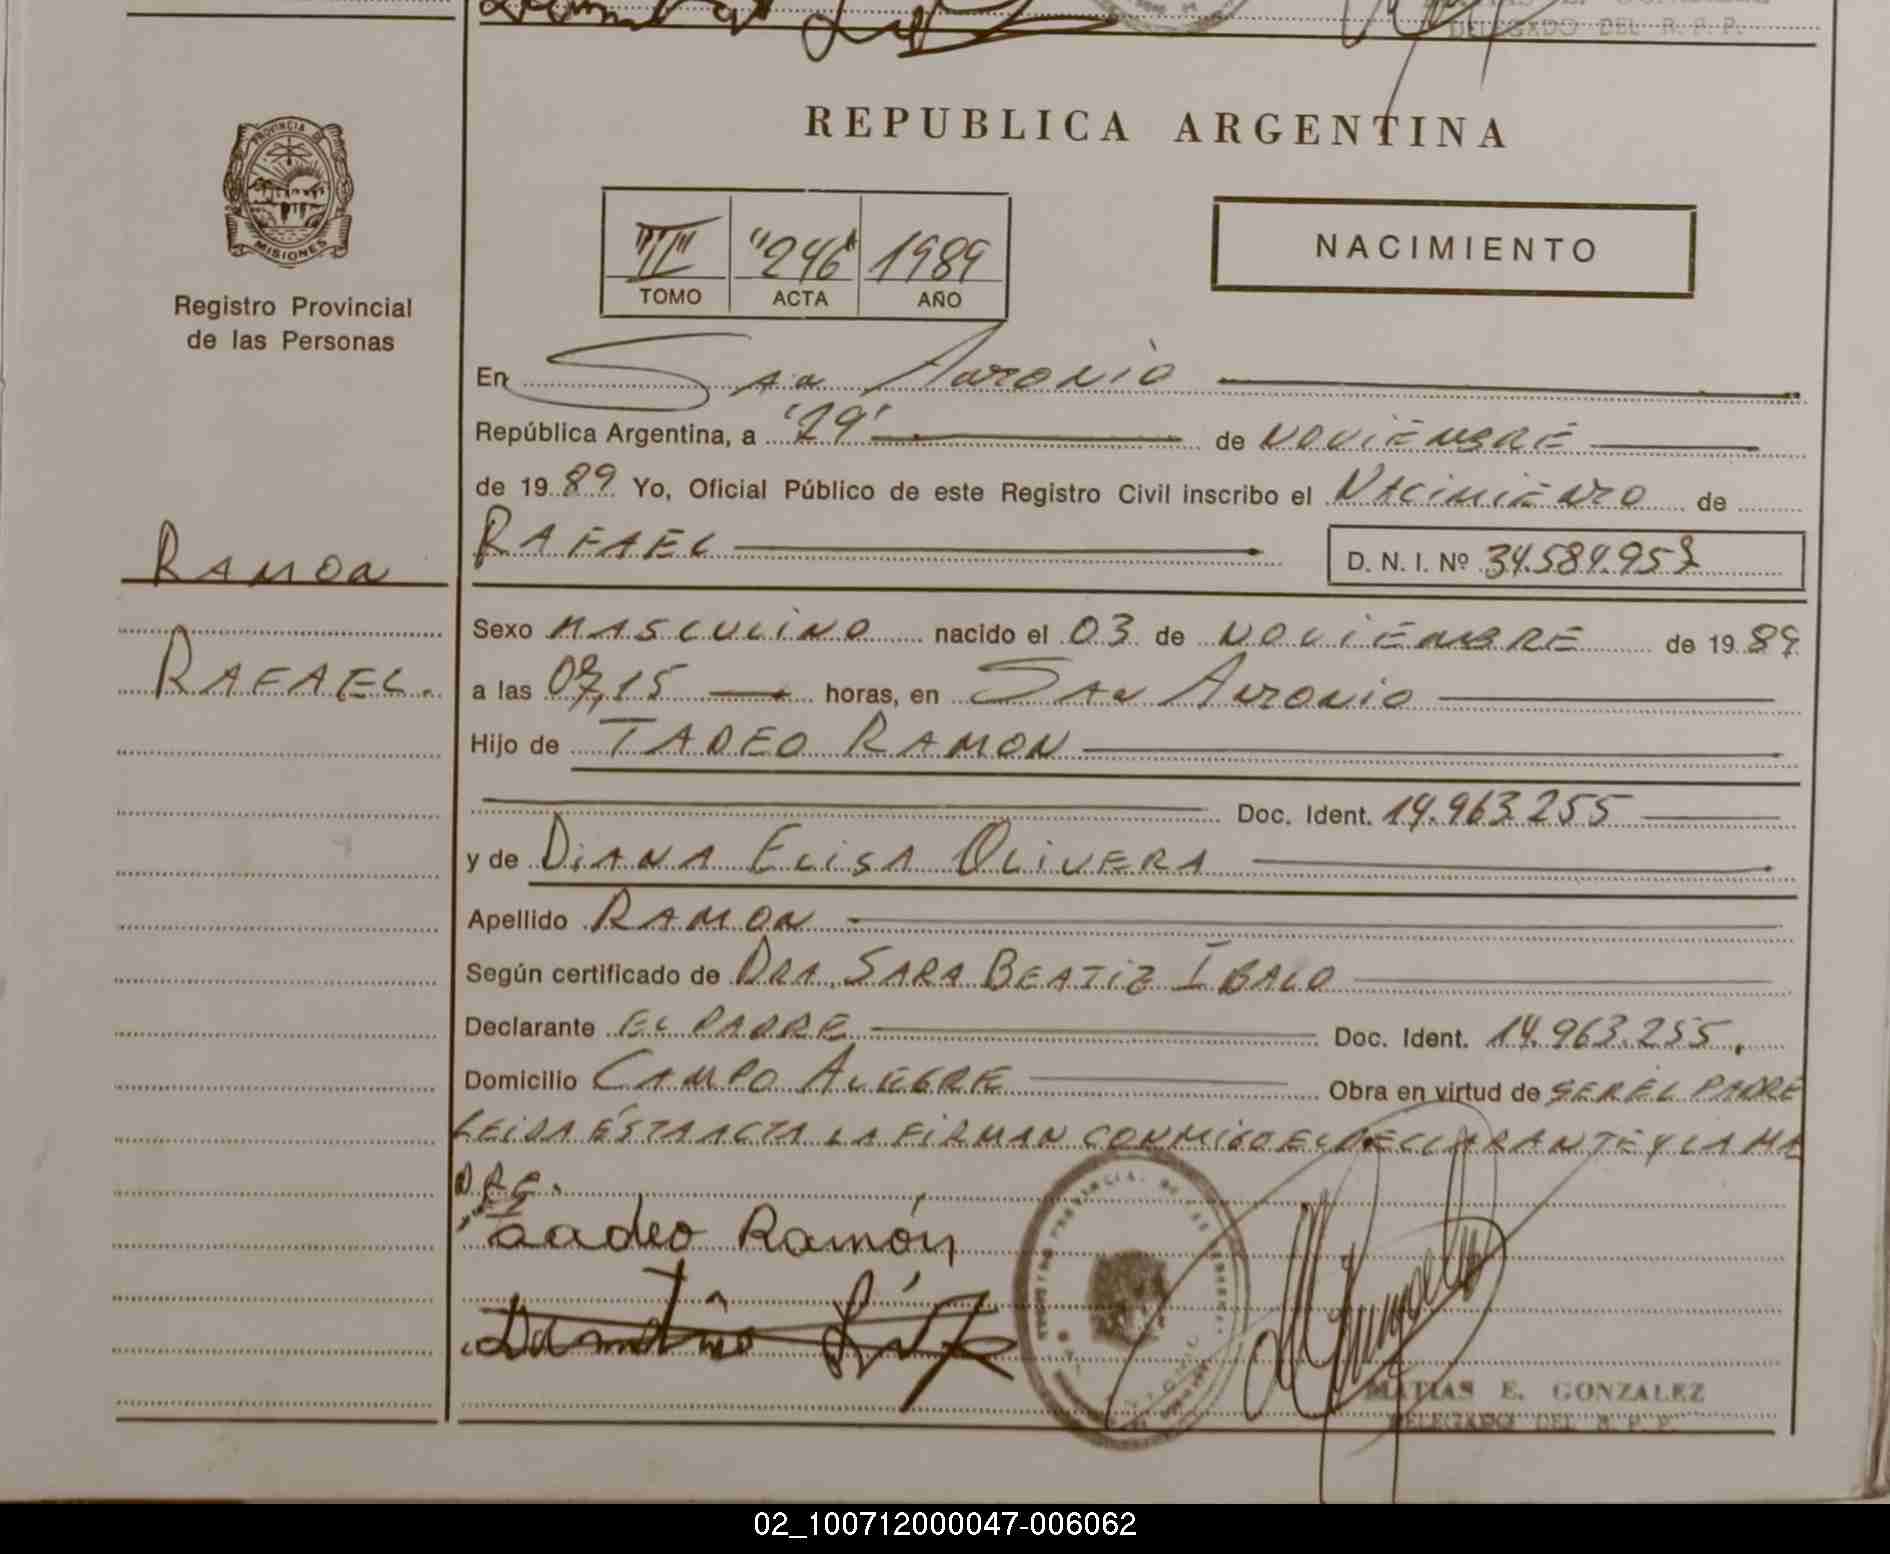 DELEGADO DEL R. P. P.
REPUBLICA ARGENTINA
PROVINCIA DE
MISIONES
Registro Provincial
de las Personas
III "246" 1989
TOMO ACTA AÑO
NACIMIENTO
En San Antonio
República Argentina, a "29" de NOVIEMBRE
de 1989 Yo, Oficial Público de este Registro Civil inscribo el NACIMIENTO de
RAFAEL D. N. I. Nº 34.584.953
RAMON
RAFAEL.
Sexo MASCULINO nacido el 03 de NOVIEMBRE de 1989
a las 15 horas, en SAN ANTONIO
Hijo de TADEO RAMON
Doc. Ident. 14.963.255
y de DIANA ELISA OLIVERA
Apellido RAMON
Según certificado de DRA. SARA BEATIZ IBALO
Declarante EL PADRE Doc. Ident. 14.963.255.
Domicilio CAMPO ALEGRE Obra en virtud de SER EL PADRE
LEIDA ÉSTA ACTA LA FIRMAN CONMIGO EL DECLARANTE Y LA MA
DRE.
Tadeo Ramón
MATIAS E. GONZALEZ
DELEGADO DEL R. P. P.
02_100712000047-006062